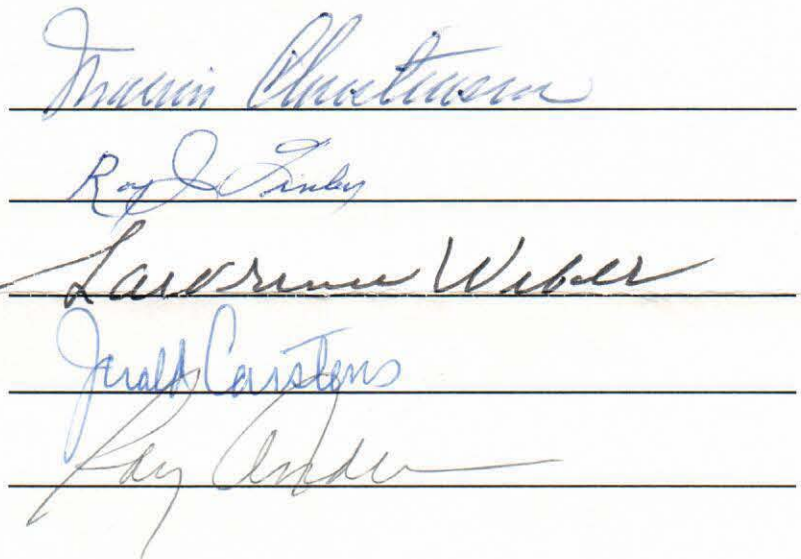 Christensen
Roy J Finley
Lawrence Weber
Jerald Carstens
Ray